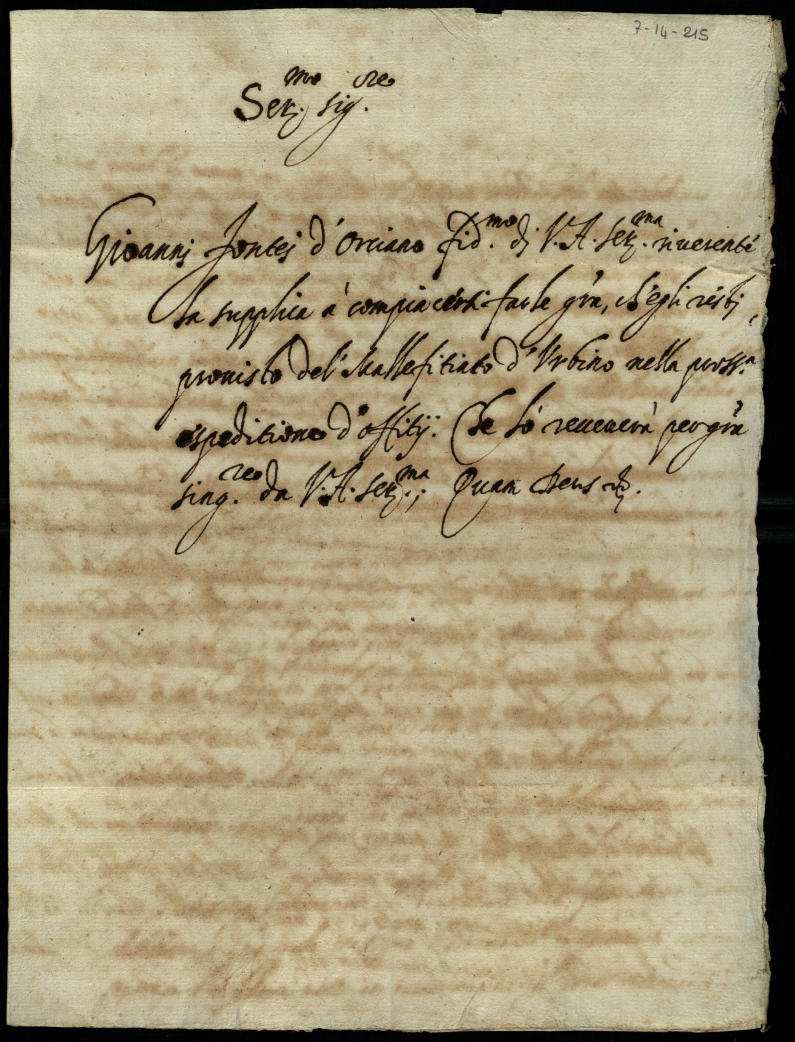 7-14-215
Ser.mo sig.re
Giovannj Fontej d'Orciano fid.mo dj V.A. Ser.ma riverente
la supplica à compiacersi farle gra, ch'egli restj
provisto del Mallefitiato d'Urbino nella pross.a
espeditione d'offitij. Che lo riceverà per gra
sing.re da V.A. Ser.ma; Quam Deus &.